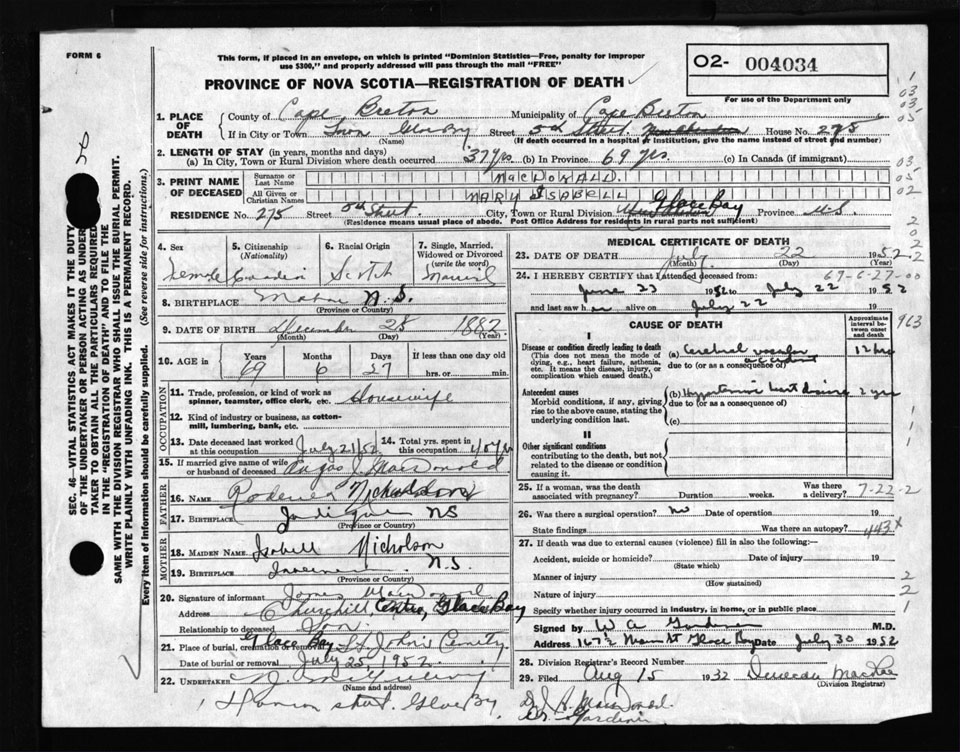 FORM 6
This form, if placed in an envelope, on which is printed "Dominion Statistics—Free, penalty for improper
use $300," and properly addressed will pass through the mail "FREE"
PROVINCE OF NOVA SCOTIA—REGISTRATION OF DEATH
O2- 004034
For use of the Department only
1. PLACE OF DEATH
County of Cape Breton Municipality of Cape Breton
If in City or Town Town Glace Bay Street 5th Street House No. 275
(Name) (If death occurred in a hospital or institution, give the name instead of street and number)
2. LENGTH OF STAY (in years, months and days)
(a) In City, Town or Rural Division where death occurred 37 yrs (b) In Province 69 yrs. (c) In Canada (if immigrant)
3. PRINT NAME OF DECEASED
Surname or Last Name MacDONALD.
All Given or Christian Names MARY ISABELL
RESIDENCE No. 275 Street 5th Street City, Town or Rural Division Glace Bay Province N.S.
(Residence means usual place of abode. Post Office Address for residents in rural parts not sufficient)
4. Sex Female
5. Citizenship (Nationality) Canadian
6. Racial Origin Scotch
7. Single, Married, Widowed or Divorced (write the word) Married
8. BIRTHPLACE N.S.
(Province or Country)
9. DATE OF BIRTH December 25 1882
(Month) (Day) (Year)
10. AGE in Years 69 Months 6 Days 27 If less than one day old hrs. or min.
OCCUPATION
11. Trade, profession, or kind of work as spinner, teamster, office clerk, etc. Housewife
12. Kind of industry or business, as cotton-mill, lumbering, bank, etc.
13. Date deceased last worked at this occupation July 21/52 14. Total yrs. spent in this occupation
15. If married give name of wife or husband of deceased Angus J. MacDonald
FATHER
16. NAME Nicholson
17. Birthplace NS
(Province or Country)
MOTHER
18. MAIDEN NAME Isabell Nicholson
19. BIRTHPLACE N.S.
(Province or Country)
20. Signature of informant James MacDonald
Address Churchill Centre, Glace Bay
Relationship to deceased Son
21. Place of burial, cremation or removal Glace Bay
Date of burial or removal July 25, 1952.
22. UNDERTAKER
(Name and address)
Glace Bay
MEDICAL CERTIFICATE OF DEATH
23. DATE OF DEATH July 22 1952
(Month) (Day) (Year)
24. I HEREBY CERTIFY that I attended deceased from:
69-6-27-00
June 23 1952 to July 22 1952
and last saw her alive on July 22 19
963
CAUSE OF DEATH
Approximate interval between onset and death
I
Disease or condition directly leading to death
(This does not mean the mode of dying, e.g., heart failure, asthenia, etc. It means the disease, injury, or complication which caused death.)
(a) Cerebral vascular accident 12 hrs
due to (or as a consequence of)
Antecedent causes
Morbid conditions, if any, giving rise to the above cause, stating the underlying condition last.
(b) Hypertensive heart disease 2 yrs
due to (or as a consequence of)
(c)
II
Other significant conditions
contributing to the death, but not related to the disease or condition causing it.
25. If a woman, was the death associated with pregnancy? Duration weeks. Was there a delivery?
7-22-2
26. Was there a surgical operation? no Date of operation 19
State findings Was there an autopsy?
443x
27. If death was due to external causes (violence) fill in also the following:
Accident, suicide or homicide? Date of injury 19
(State which)
Manner of injury
(How sustained)
Nature of injury
Specify whether injury occurred in industry, in home, or in public place
Signed by W A Gardiner M.D.
Address 167½ Main St Glace Bay Date July 30 1952
28. Division Registrar's Record Number
29. Filed Aug 15 1952 Duncan MacRae
(Division Registrar)
Dr. MacDonald
Dr. Gardiner
SEC. 46—VITAL STATISTICS ACT MAKES IT THE DUTY
OF THE UNDERTAKER OR PERSON ACTING AS UNDER-
TAKER TO OBTAIN ALL THE PARTICULARS REQUIRED
IN THE "REGISTRATION OF DEATH" AND TO FILE THE
SAME WITH THE DIVISION REGISTRAR WHO SHALL ISSUE THE BURIAL PERMIT.
WRITE PLAINLY WITH UNFADING INK. THIS IS A PERMANENT RECORD.
Every item of Information should be carefully supplied. (See reverse side for instructions.)